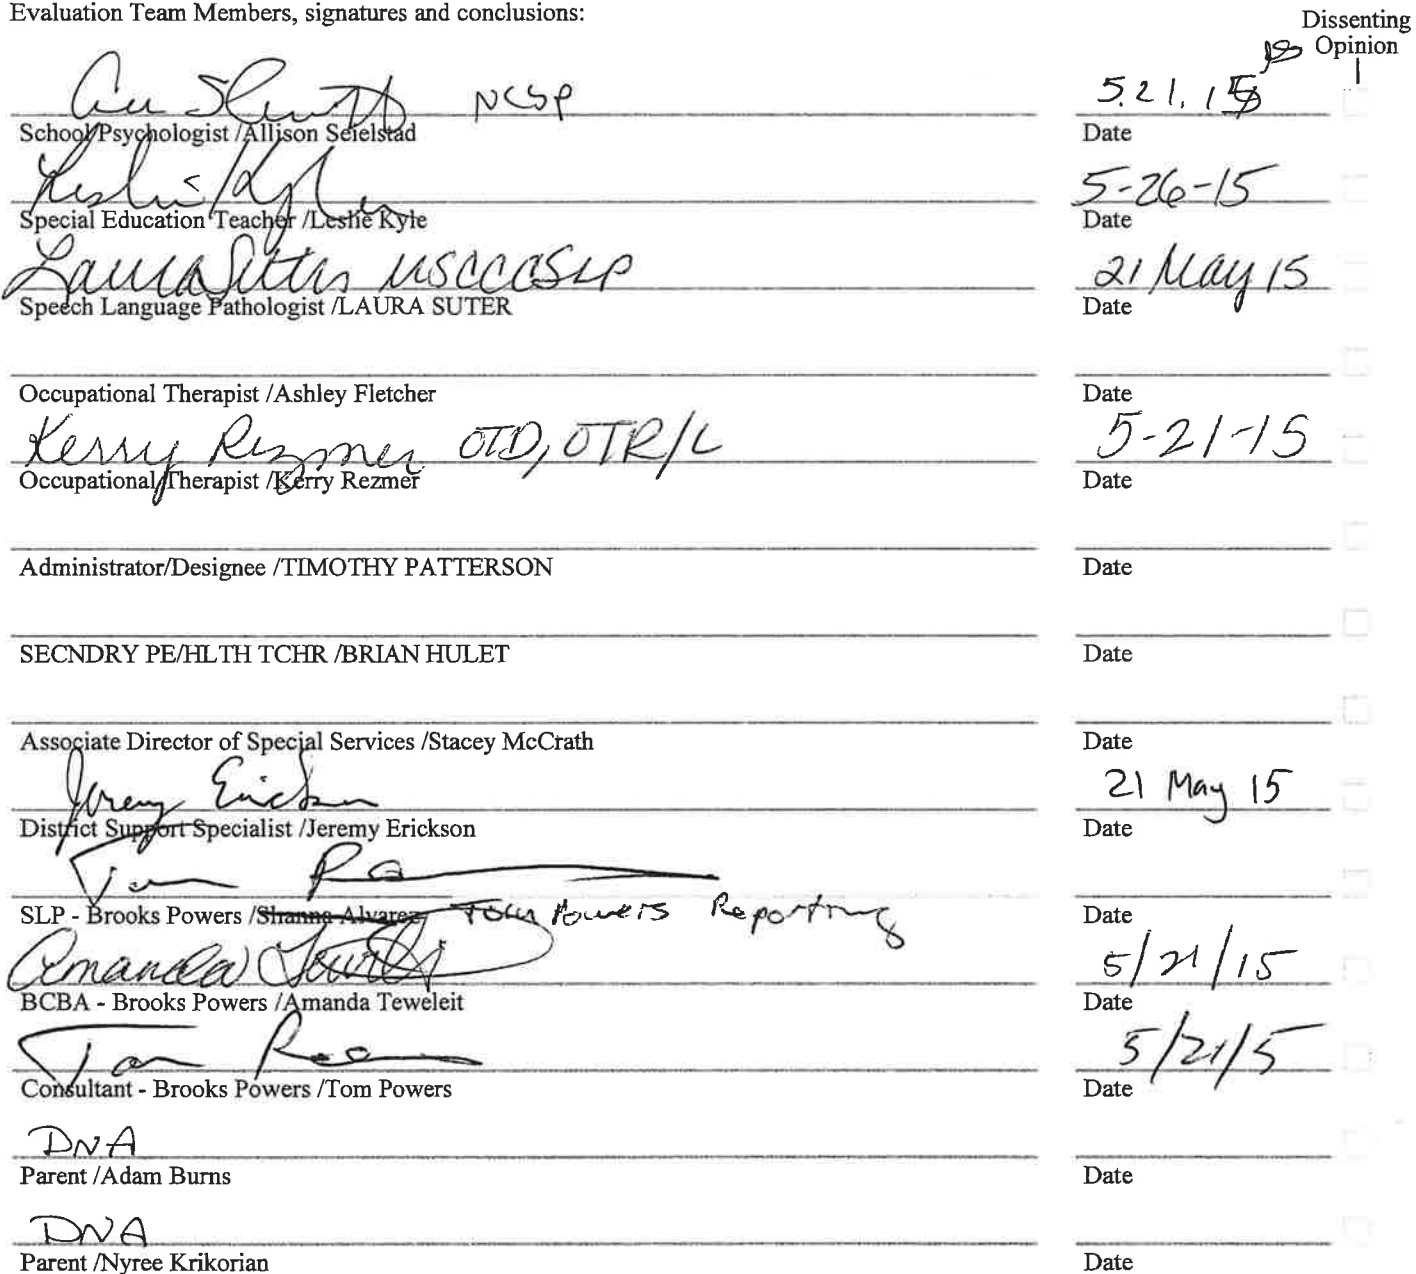 Evaluation Team Members, signatures and conclusions:
Dissenting
Opinion
NCSP 5.21.15
School Psychologist /Allison Seielstad Date
Leslie Kyle 5-26-15
Special Education Teacher /Leslie Kyle Date
Laura Suter MSCCCSLP 21 May 15
Speech Language Pathologist /LAURA SUTER Date
Occupational Therapist /Ashley Fletcher Date
Kerry Rezmer OTD, OTR/L 5-21-15
Occupational Therapist /Kerry Rezmer Date
Administrator/Designee /TIMOTHY PATTERSON Date
SECNDRY PE/HLTH TCHR /BRIAN HULET Date
Associate Director of Special Services /Stacey McCrath Date
Jeremy Erickson 21 May 15
District Support Specialist /Jeremy Erickson Date
Tom
SLP - Brooks Powers /Shanna Alvarez Tom Powers Reporting Date
Amanda 5/21/15
BCBA - Brooks Powers /Amanda Teweleit Date
Tom 5/21/5
Consultant - Brooks Powers /Tom Powers Date
DNA
Parent /Adam Burns Date
DNA
Parent /Nyree Krikorian Date